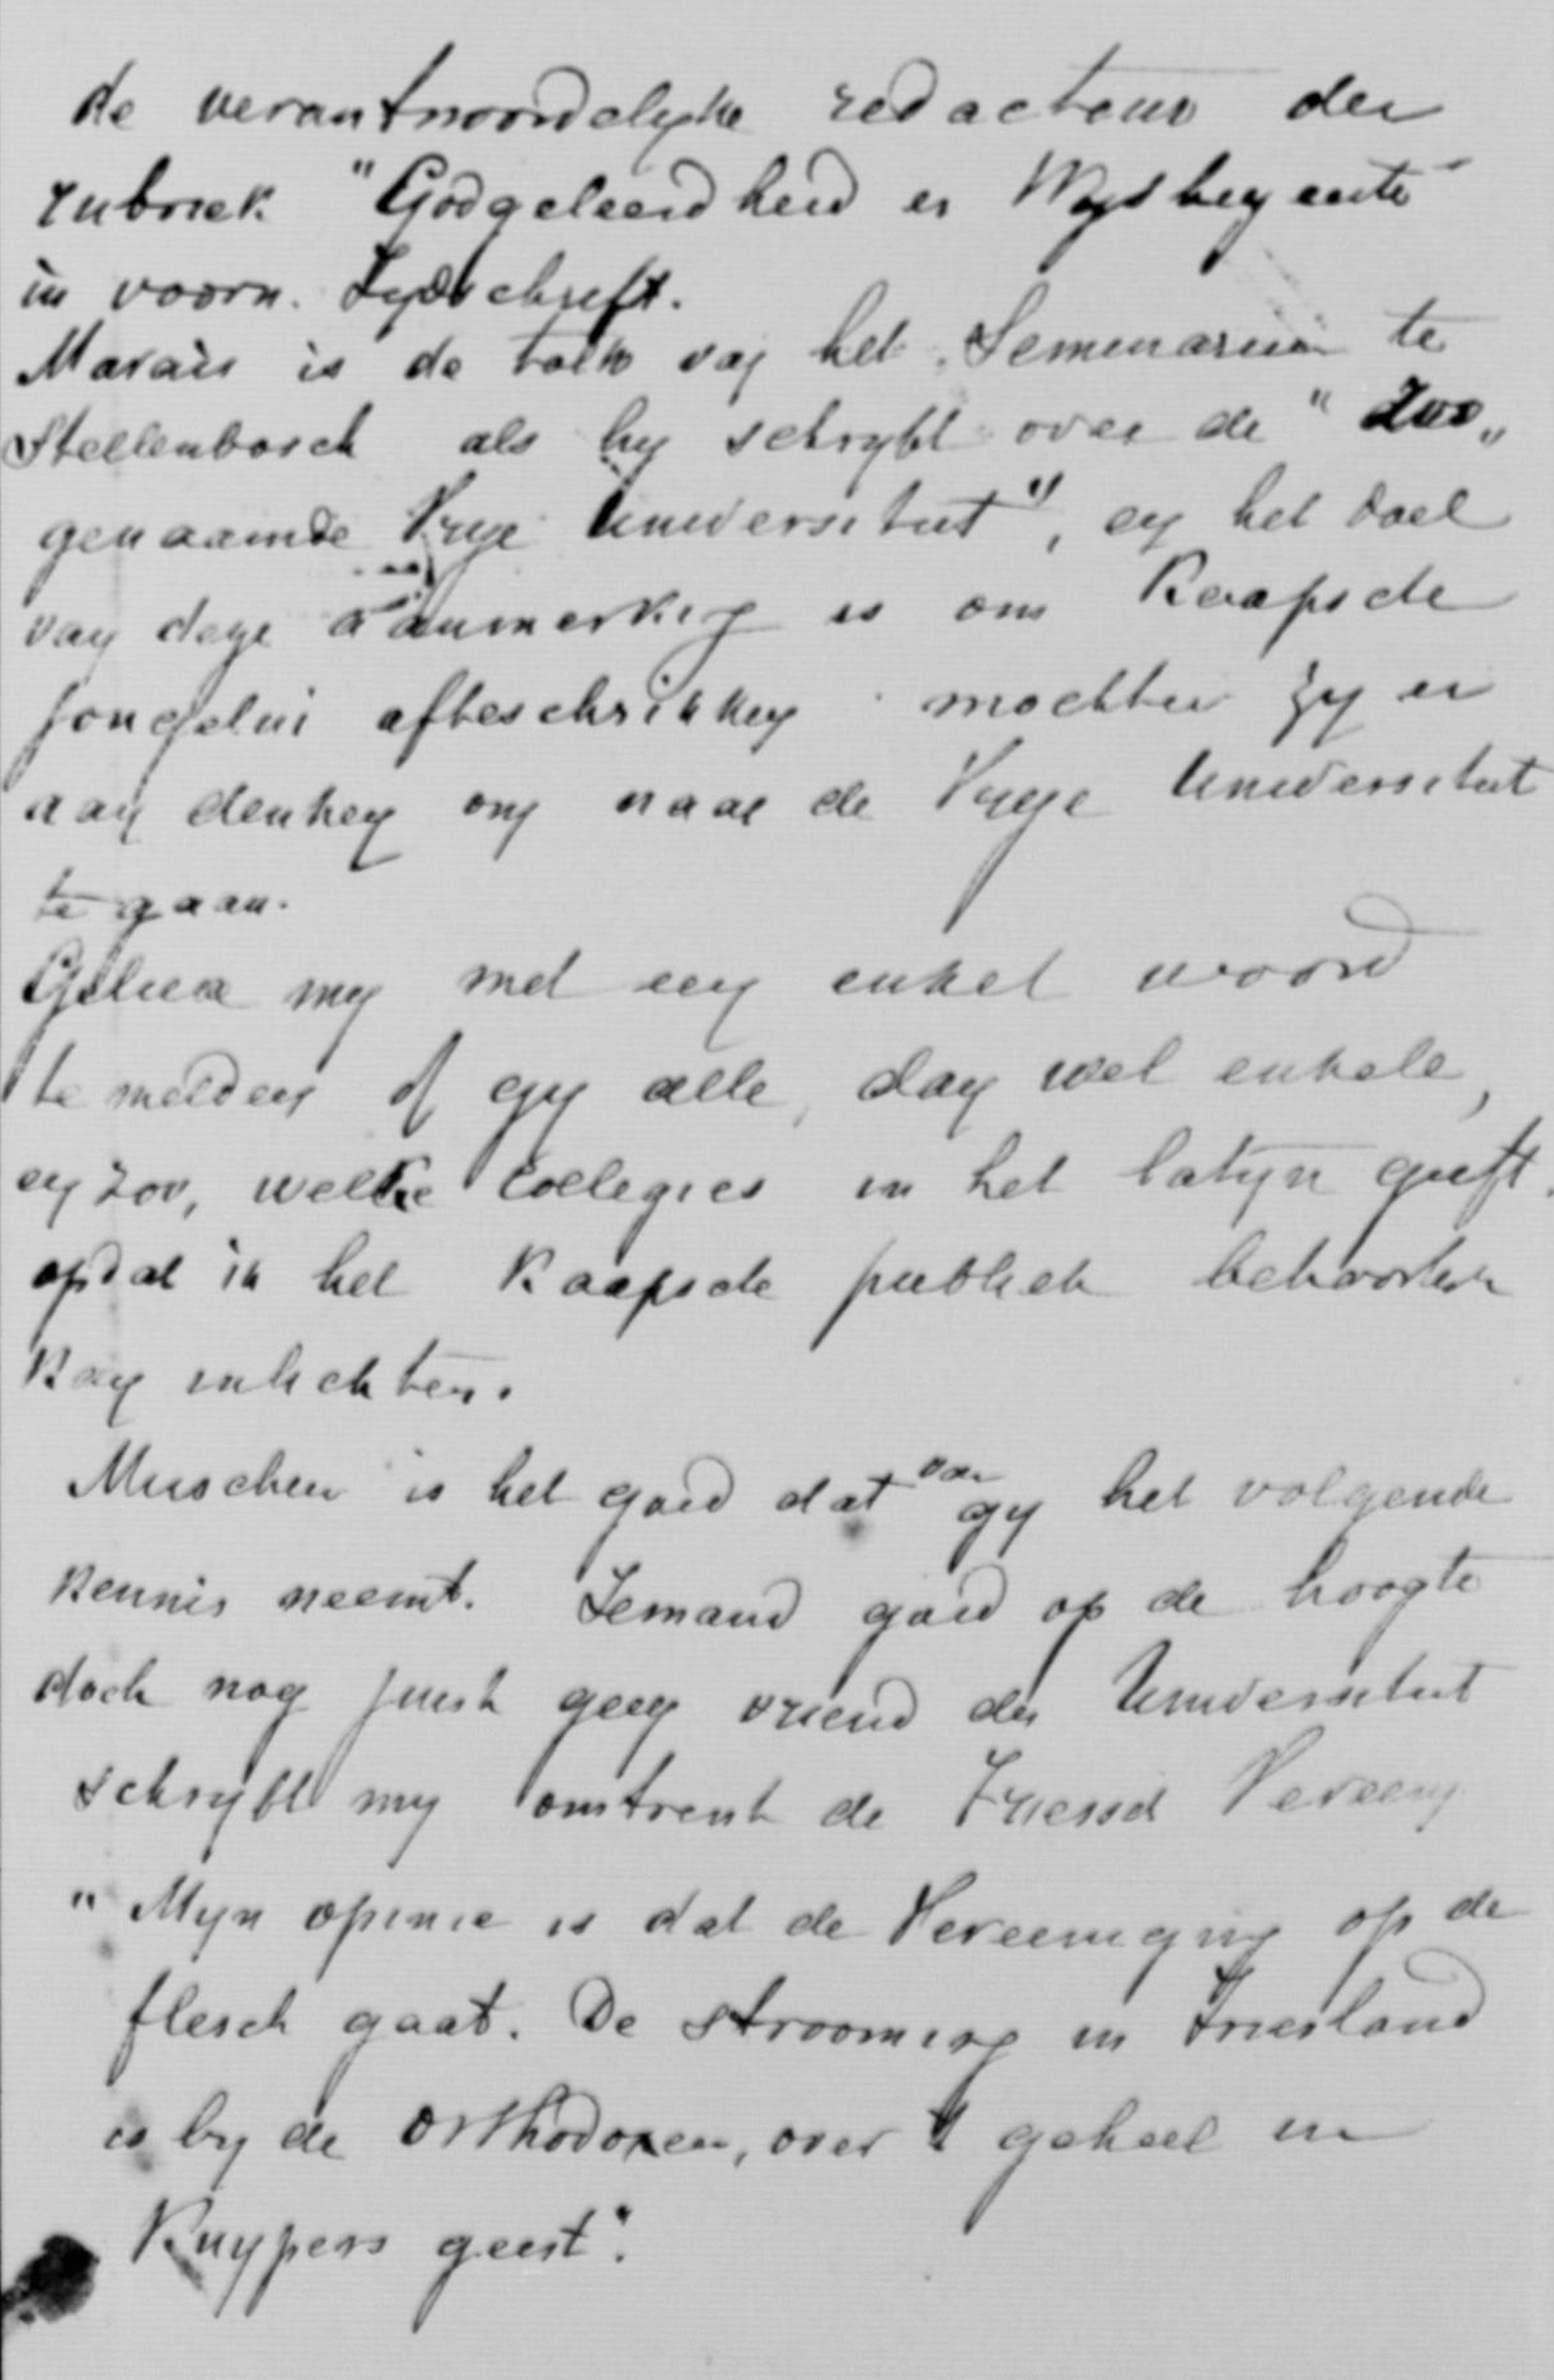 de verantwoordelyke redacteur der
rubriek "Godgeleerdheid en Wysbegeerte"
in voorn. Tydschrift.
Marais is de tolk van het Seminarium te
Stellenbosch als hy schryft over de "Zoo„
genaamde Vrye Universiteit", en het doel
van deze aanmerking is om Kaapsche
jongelui afteschrikken mochten zy er
aan denken om naar de Vrye Universiteit
te gaan.
Gelieve my met een enkel woord
te melden of gy alle, dan wel enkele,
en zoo, welke Collegies in het latyn geeft.
opdat ik het Kaapsche publiek behoorlik
kan inlichten.
Misschien is het goed dat van gy het volgende
kennis neemt. Iemand goed op de hoogte
doch nog juist geen vriend der Universiteit
schryft my omtrent de Friesch Vereen
"Myn opinie is dat de Vereeniging op de
flesch gaat. De strooming in Friesland
is by de orthodoxen, over 't geheel in
Kuypers geest".